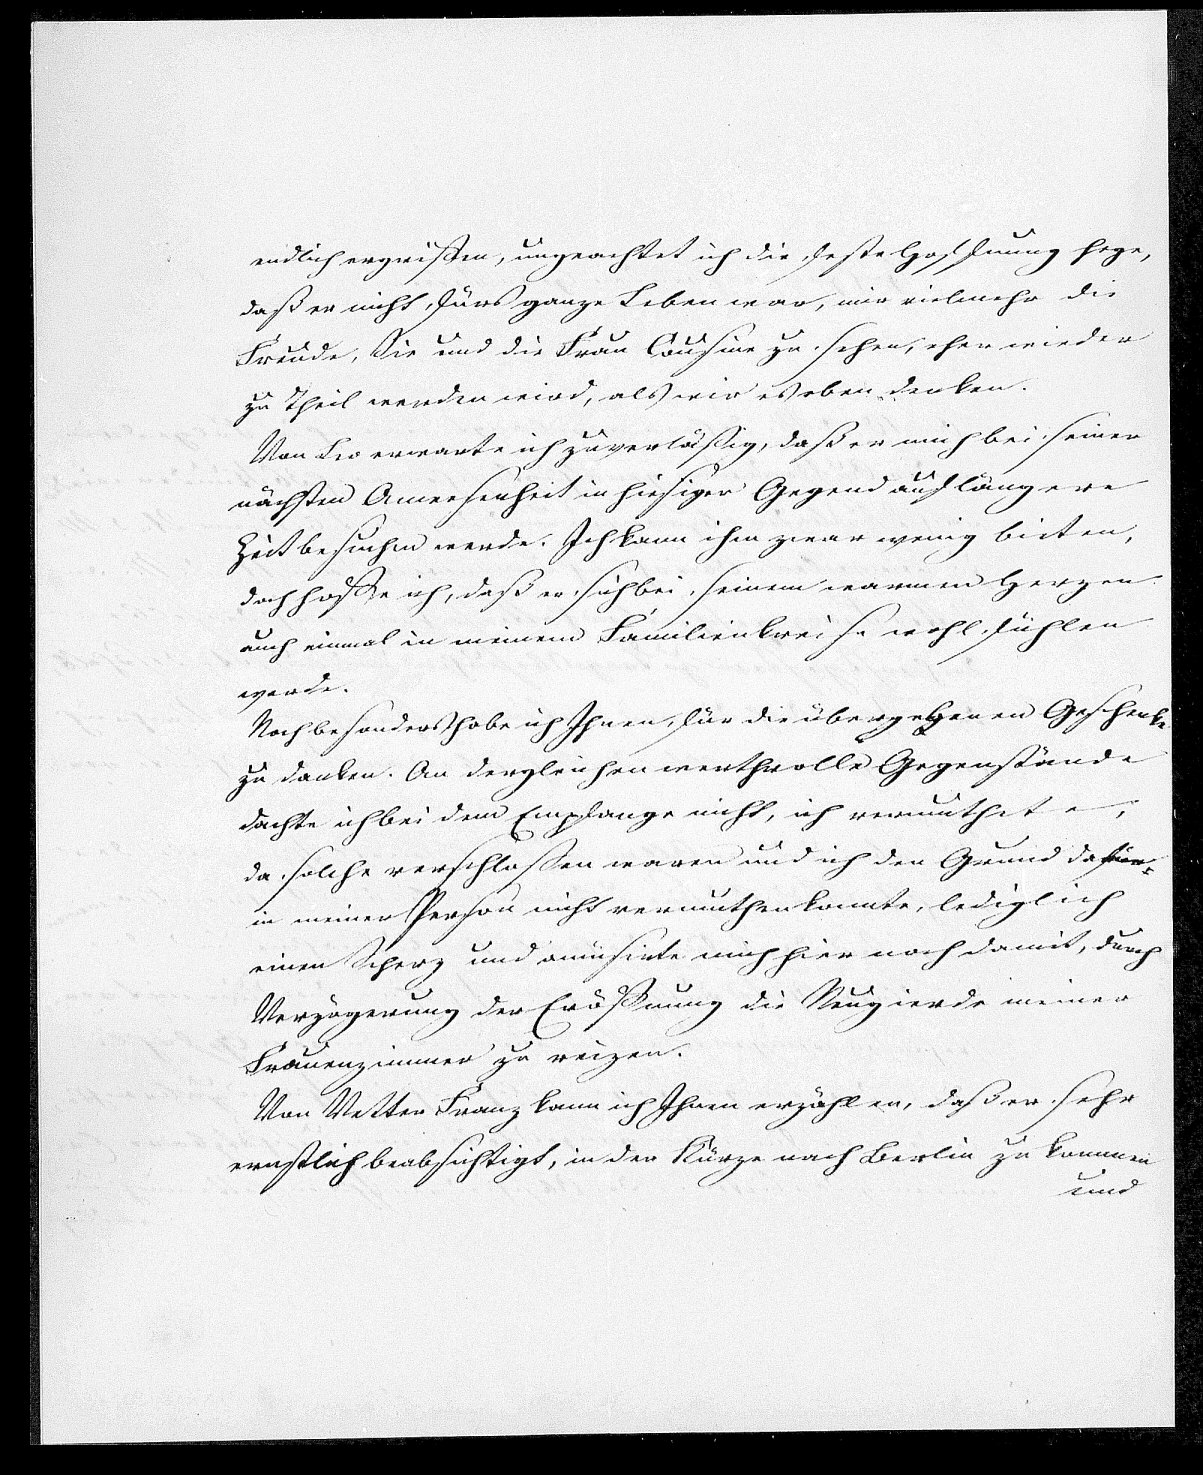 endlich ergriffen, ungeachtet ich die feste Hoffnung hege,
daß er nicht fürs ganze Leben war, mir vielmehr die
Freude, Sie und die Frau Cousine zu sehen, eher wieder
zu Theil werden wird, als wir es eben denken.
Von Leo erwarte ich zuverläßig, daß er mich bei seiner
nächsten Anwesenheit in hiesiger Gegend auf längere
Zeit besuchen werde. Ich kann ihm zwar wenig bieten,
doch hoffe ich, daß er sich bei seinem warmen Herzen
auch einmal in meinem Familienkreise wohl fühlen
werde.
Noch besonders habe ich Ihnen für die übergebenen Geschenke
zu danken. An dergleichen werthvolle Gegenstände
dachte ich bei dem Empfange nicht, ich vermuthete,
da solche verschloßen waren und ich den Grund dafür
in meiner Person nicht vermuthen konnte, lediglich
einen Scherz und amüsirte mich hier noch damit, durch
Verzögerung der Eröffnung die Neugierde meiner
Frauenzimmer zu reizen.
Von Vetter Franz kann ich Ihnen erzählen, daß er sehr
ernstlich beabsichtigt, in der Kürze nach Berlin zu kommen
und